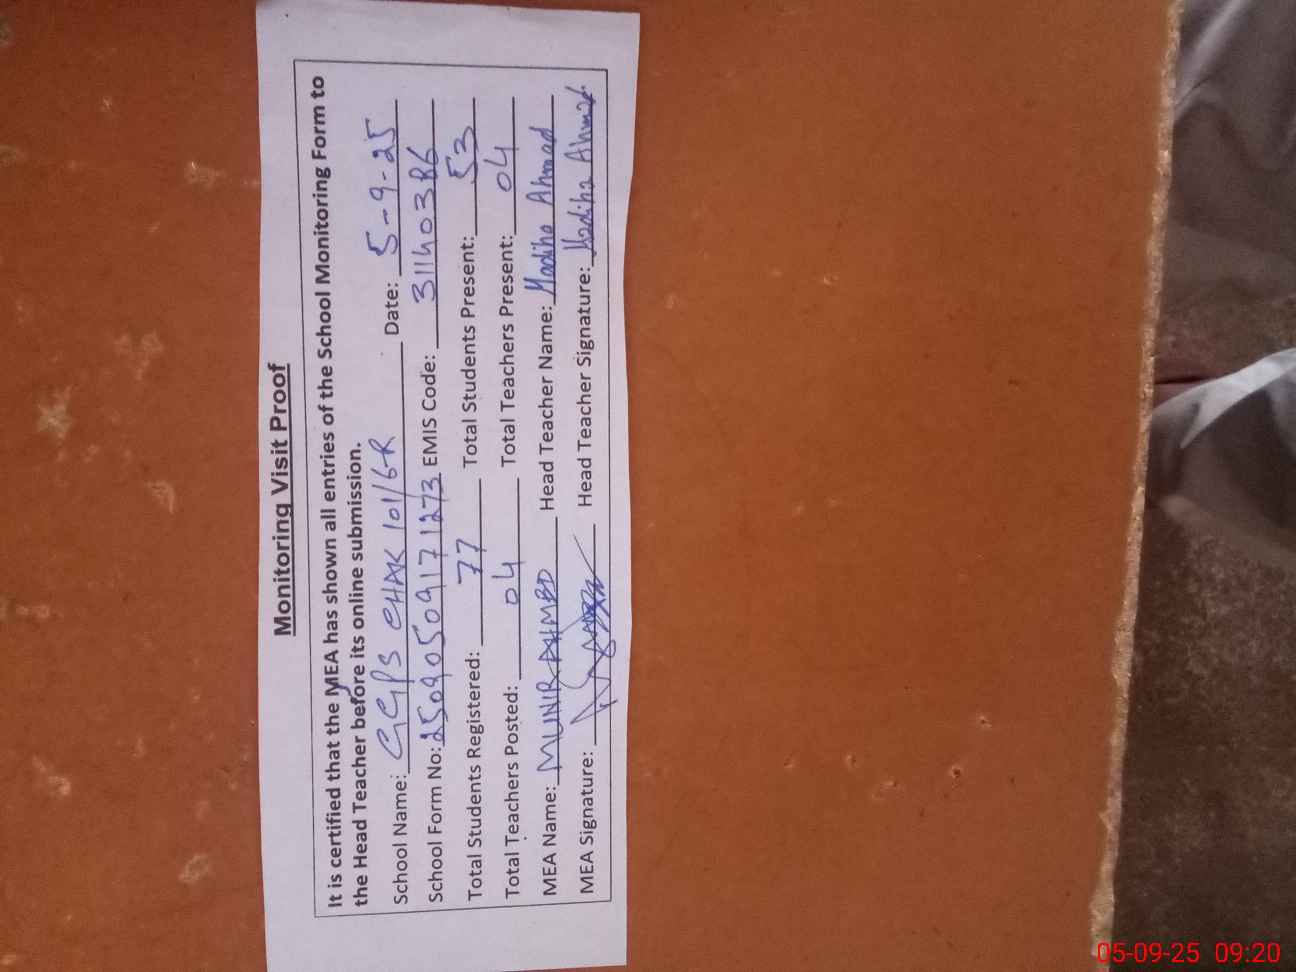 Monitoring Visit Proof
It is certified that the MEA has shown all entries of the School Monitoring Form to
the Head Teacher before its online submission.
School Name: GGPS CHAK 101/6-R Date: 5-9-25
School Form No: 25090509171273 EMIS Code: 31140386
Total Students Registered: 77 Total Students Present: 53
Total Teachers Posted: 04 Total Teachers Present: 04
MEA Name: MUNIR AHMED Head Teacher Name: Madiha Ahmad
MEA Signature: Head Teacher Signature: Madiha Ahmad
05-09-25 09:20